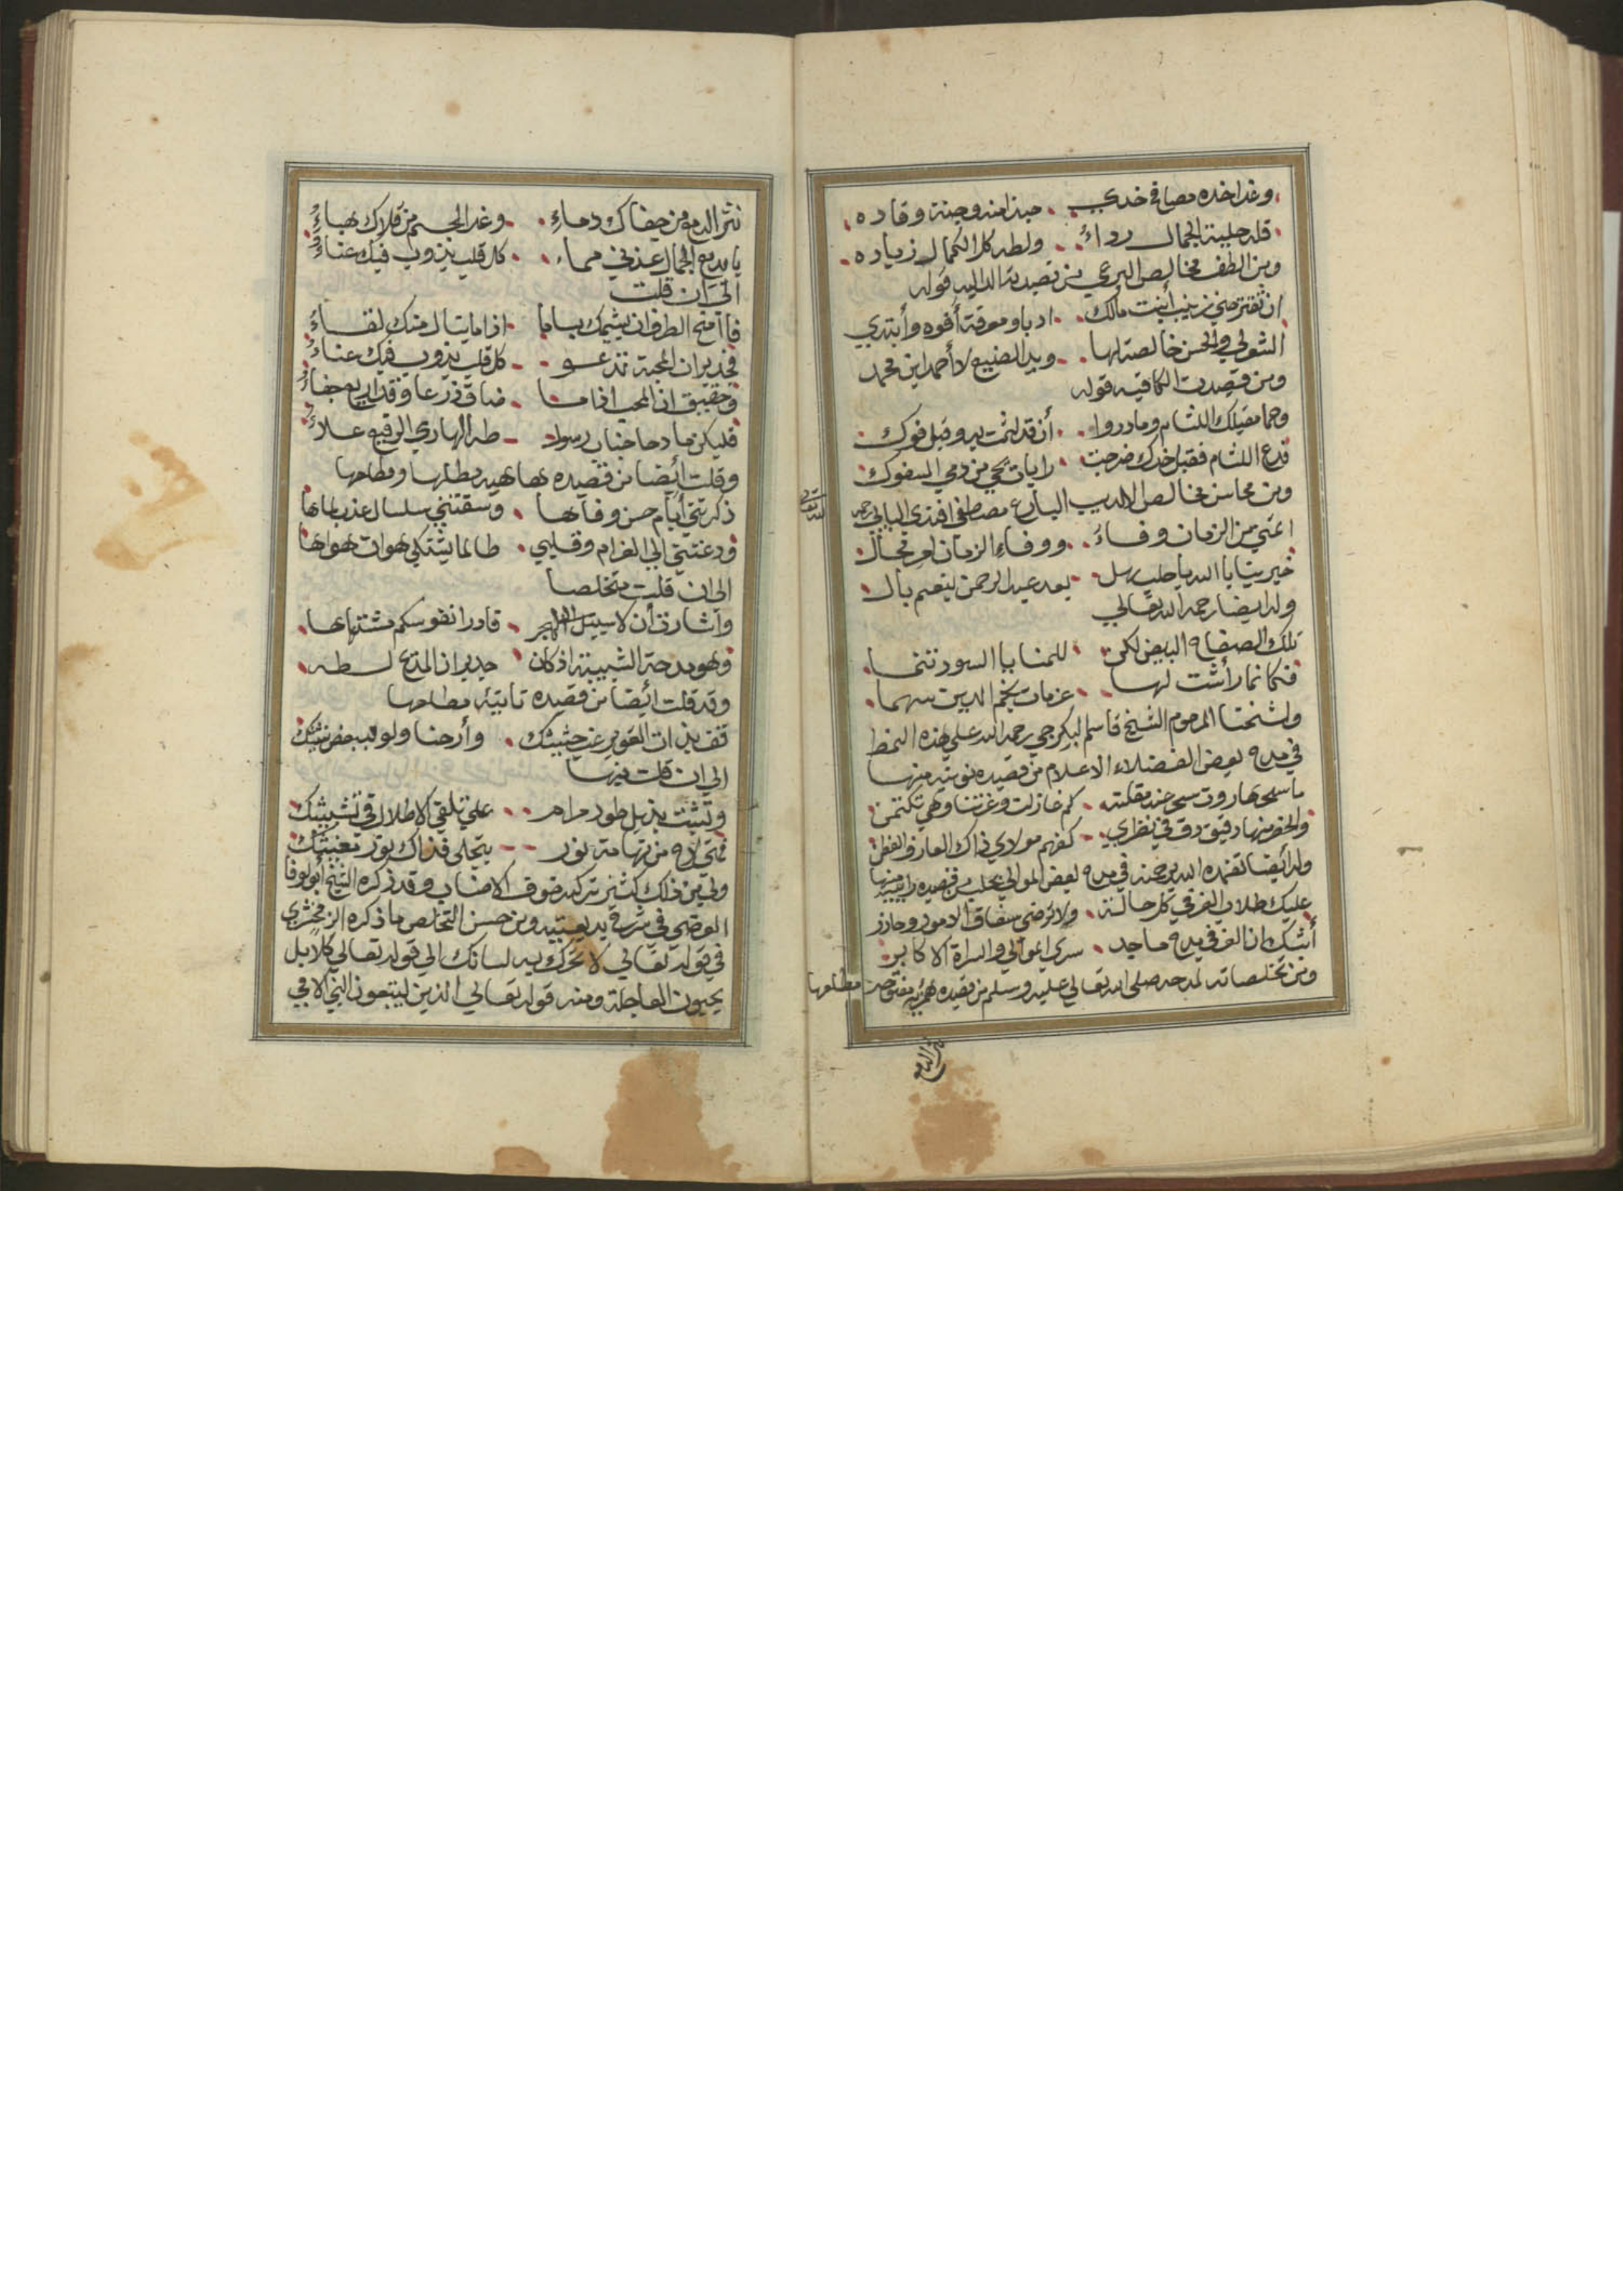 وغدا خده مصافح خدي حبذا منه وجنة وقاده
قله حلية الجمال رداء ولطه كل الكمال زياده
ومن الطف مخالص البرعي من قصيدته الداليه قوله
ادبا ومعرفة أفوه وأبتدي
الشولي والحسن خالصة لها وبد الصنيع لأحمد ابن محمد
ومن قصيدته الكافيه قوله
وحما مقيلك اللثام وما دروا أن قد لثمت يد وقبل فوك
فدع اللثام فقبل خدك ضرجت رايات من دمي المسفوك
ومن محاسن مخالص الاديب البارع مصطفى افندي البابي رحمه
الله تعالى
اعني من الزمان وفاء ووفاء الزمان امر محال
خيرينا بالله يا حلب هل بعد عبد الرحمن ينعم بال
وله ايضا رحمه الله تعالى
تلك الصفاح البيض لكن للمنايا السود تنما
فكانما رأشت لها عزمات نجم الدين سهما
ولشيخنا المرحوم الشيخ قاسم البكرجي رحمه الله على هذه النمط
في مدح بعض الفضلاء الاعلام من قصيدة نونية منها
ما سحر هاروت سحر عند مقلته كم غازلت وغزتنا وهي تكتمن
والخصر منها دقيق دق في نظري كفهم مولاي ذاك العارف الفطن
وله أيضا تغمده الله برحمته في مدح لعض الموالي بحلب من قصيدة رائيه منها
عليك طلاب العز في كل حالة ولا ترضى سفاف الامور وحاذر
أشك ان العز في مدح ماجد سري الموالي والسراة الاكابر
ومن تخلصاته لمدحه صلى الله تعالى عليه وسلم من قصيدة همزية مفتوحة مطلعها
نثر الدمع
نثر الدمع من جفاك دماء وغدا الجسم من قلاك هباء
يا بديع الجمال عذبي مهما كل قلب يذوب فيك عناء
الى ان قلت
فاامنح الطرف ان يشيمك ياما اذا ما ينال منك لقاء
فجدير ان المحبة تدعو كل قلب يذوب فيك عناء
وحقيق ان المحب اذا ما ضاق ذرعا وقد اريع جفاء
فليكن مادحا جناب رسول طه الهادي الرفيع علاء
وقلت أيضا من قصيدة هاهية مطلعها ومطلعها
ذكرتني أيام حسن وفاها وسقتني سلسال عذب لماها
ودعتني الى الغرام وقلبي طالما يشتكي هوان هواها
الى ان قلت متخلصا
وأشارت أن لا سبيل الهجر قادرا نفوسكم مشتهاها
وهو مدحة الشبيبة اذ كان جدير ان المدح لطه
وقد قلت أيضا من قصيدة تائية مطلعها
قف بذات الغوير عند حثيثك وأرحنا ولو ببعض تثبتك
الى ان قلت فيها
وتشبث بذيل طود مرام على تلقى الاطلال في تشبيثك
فمتى لاح من تهامة نور يتجلى فذاك نور مغيثك
ولي من ذلك كثير تركته خوف الاطناب وقد ذكره الشيخ أبو الوفا
العرضي في شرح بديعيته ومن حسن التخلص ما ذكره الزمخشري
في قوله تعالى لا تحرك به لسانك الى قوله تعالى كلا بل
يحبون العاجلة ومنه قوله تعالى الذين يتبعون النبي الامي